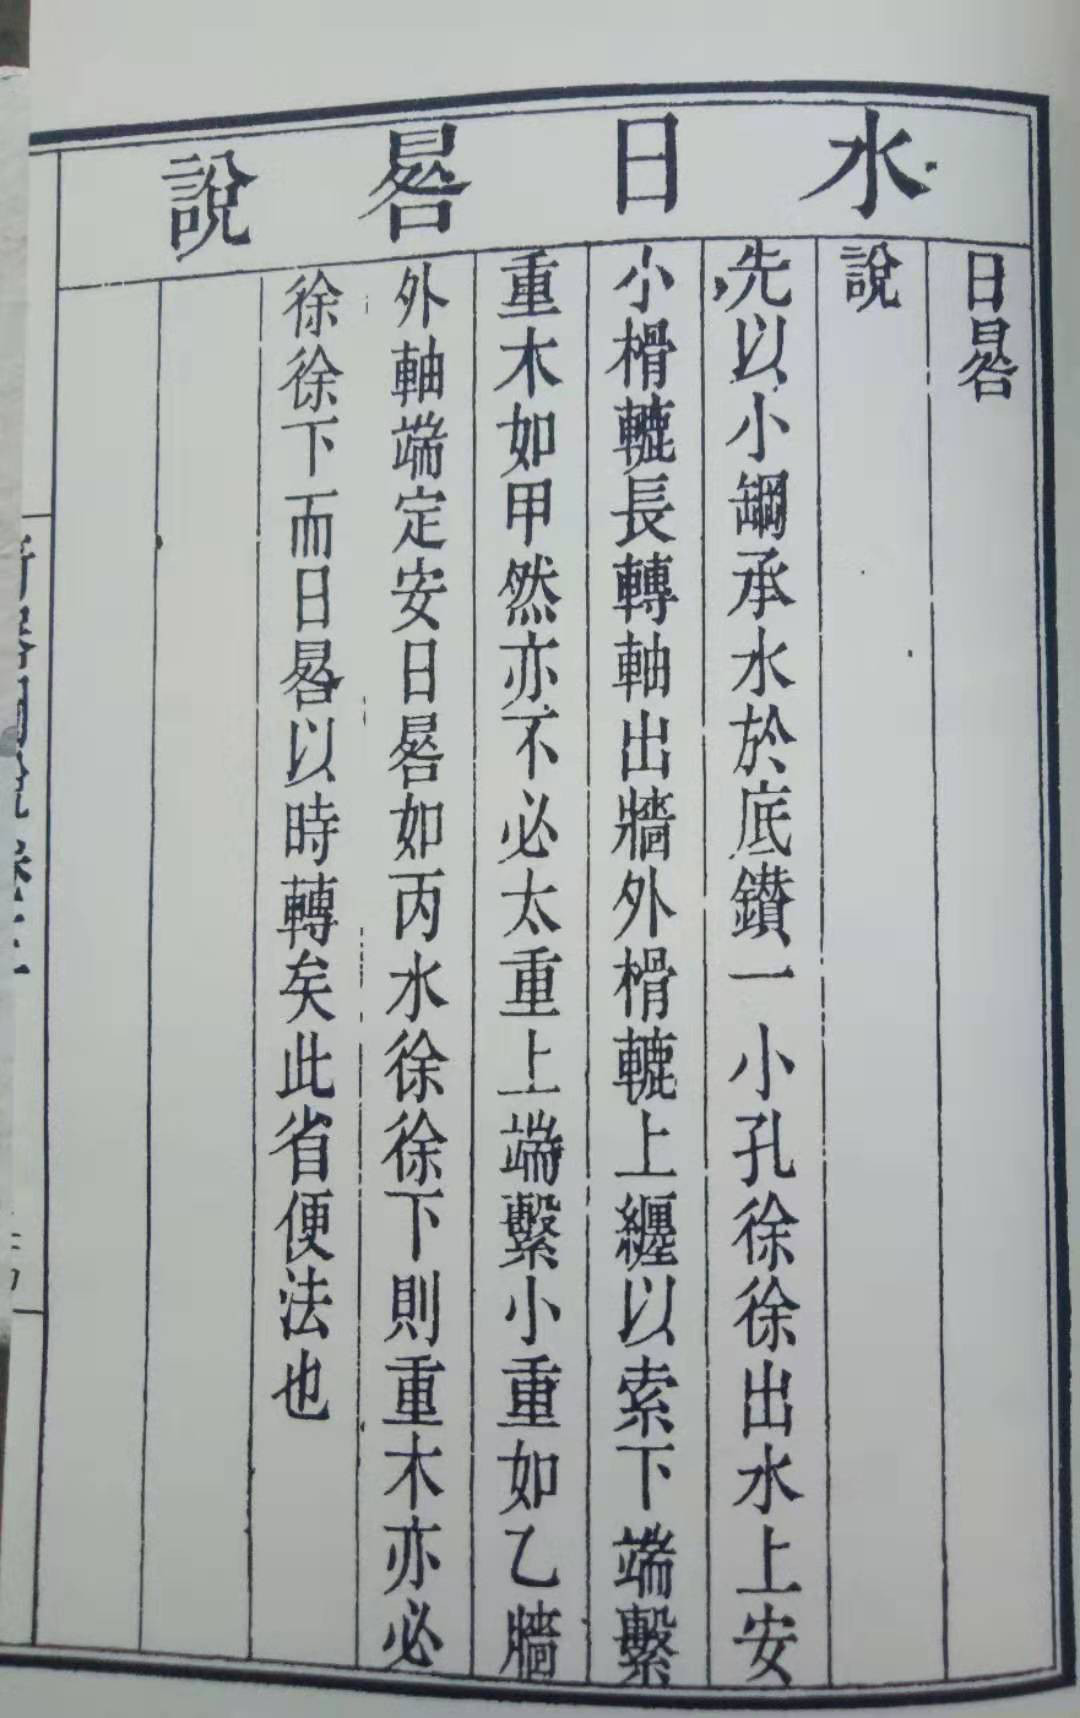 水日晷說
日晷
說
先以小罁承水於底鑚一小孔徐徐出水上安
小榾轆長轉軸出牆外榾轆上纏以索下端繫
重木如甲然亦不必太重上端繫小重如乙牆
外軸端定安日晷如丙水徐徐下則重木亦必
徐徐下而日晷以時轉矣此省便法也